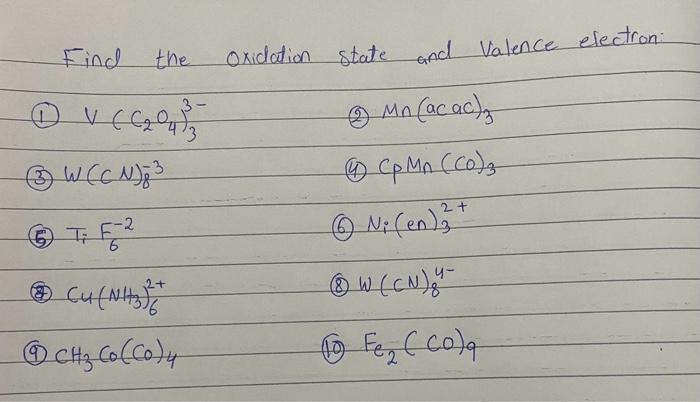 Find the oxidation state and Valence electron:
① V(C₂O₄)₃³⁻ ② Mn(acac)₃
③ W(CN)₈⁻³ ④ CpMn(CO)₃
⑤ TiF₆⁻² ⑥ Ni(en)₃²⁺
⑦ Cu(NH₃)₆²⁺ ⑧ W(CN)₈⁴⁻
⑨ CH₃Co(CO)₄ ⑩ Fe₂(CO)₉